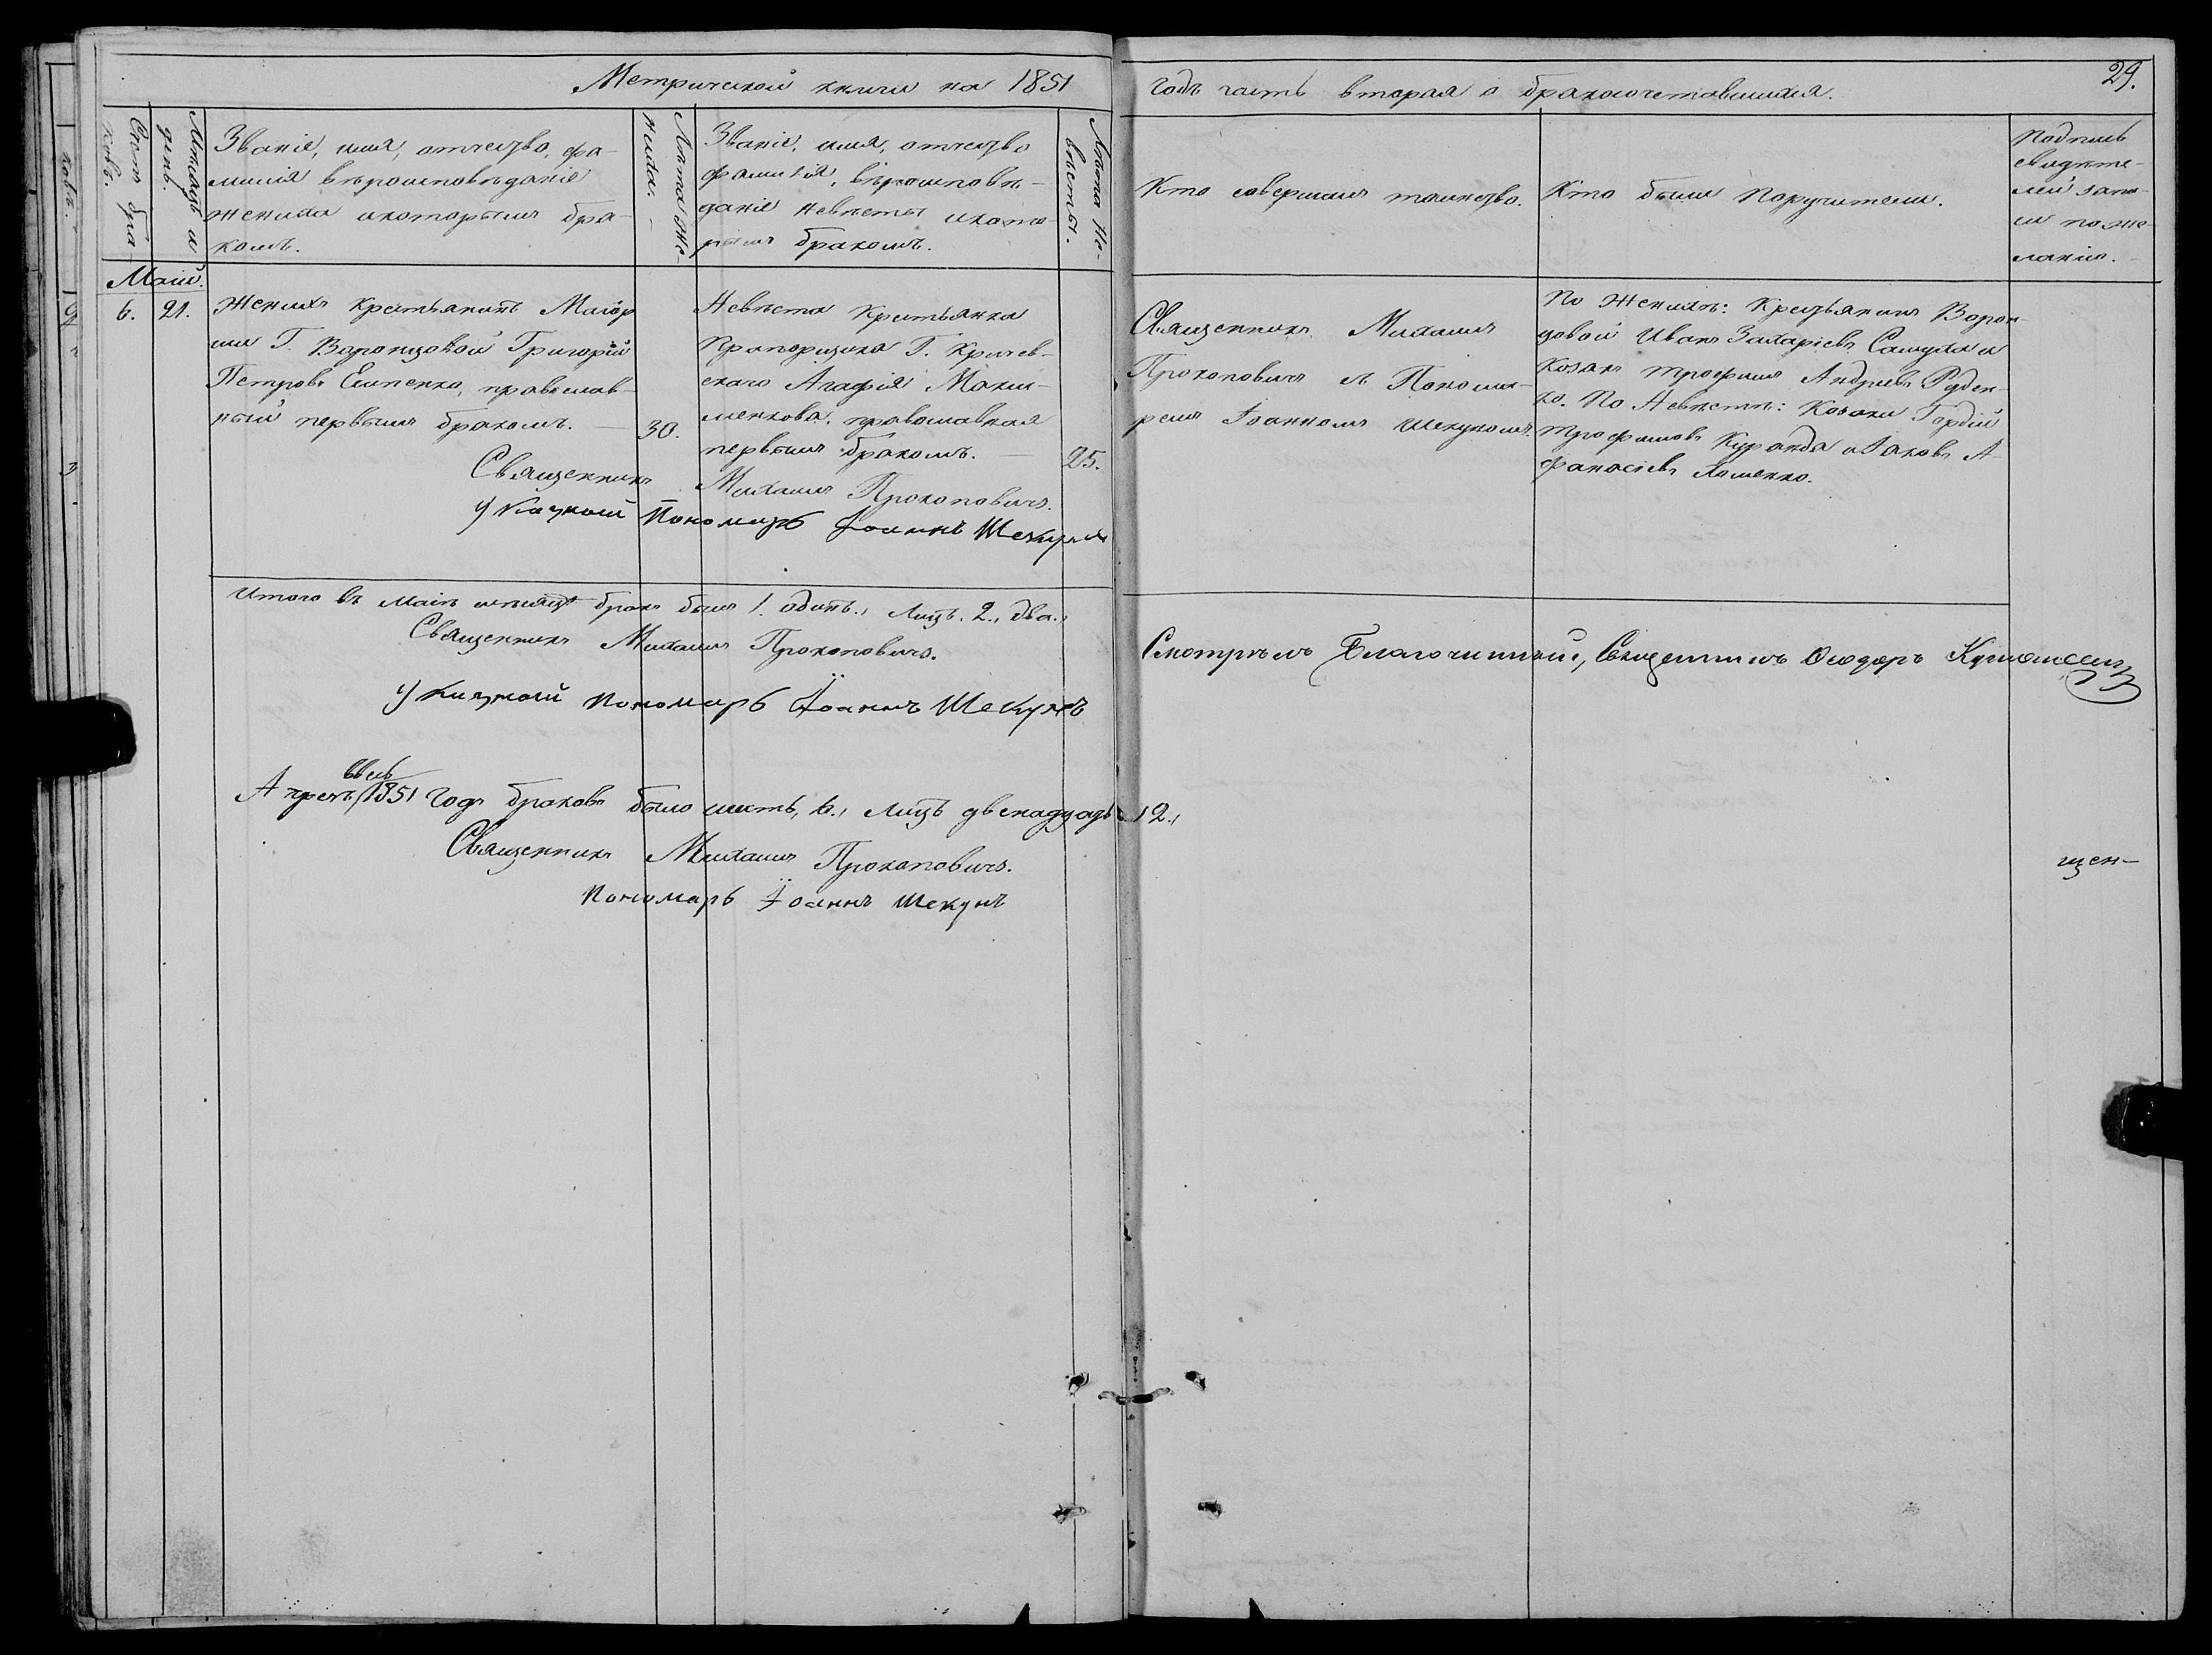 Метрической книги на 1851
годъ часть вторая о бракосочетавшихся.
29.
Счетъ бра-
ковъ.
Мѣсяцъ и
день.
Званіе, имя, отчество, фа-
милія вѣроисповѣданіе
жениха и которымъ бра-
комъ.
Лѣта же-
ниха.
Званіе, имя, отчество
фамилія, вѣроисповѣ-
даніе невѣсты и кото-
рымъ бракомъ.
Лѣта не-
вѣсты.
Кто совершалъ таинство.
Кто были поручители.
Подпись
свидѣте-
лей запи-
си по же-
ланію.
Маій.
6. 21.
Женихъ Крестьянинъ Маіор
ши Г. Варонцовой Григорій
Петровъ Емпенко, православ-
ный первымъ бракомъ. —
30.
Невѣста Крестьянка
Прапорщика Г. Кричев-
скаго Агафія Маки-
менкова, православная
первымъ бракомъ. —
25.
Священникъ Михаилъ
Прокоповичъ съ Понома-
ремъ Іоанномъ Шекуномъ.
По Женихѣ: Крестьянинъ Ворон
цовой Иванъ Захаріевъ Самуха и
Козакъ Трофимъ Андреевъ Руден-
ко. По Невѣстѣ: Козаки Гордій
Трофимовъ Куранда и Іаковъ А-
фанасіевъ Хоменко.
Священникъ Михаилъ Прокоповичъ.
Указный Пономарь Іоаннъ Шекунъ
Итого въ Маіѣ мѣсяцѣ бракъ былъ 1. одинъ., Лицъ. 2., два.,
Священникъ Михаилъ Прокоповичъ.
Указный Пономарь Іоаннъ Шекунъ
Смотрѣлъ Благочинный, Священникъ Ѳеодоръ
весь
А чрезъ 1851 годъ браковъ было шесть, 6., лицъ двенадцадь 12.,
Священникъ Михаилъ Прокоповичъ.
Пономарь Іоаннъ Шекунъ
щен-